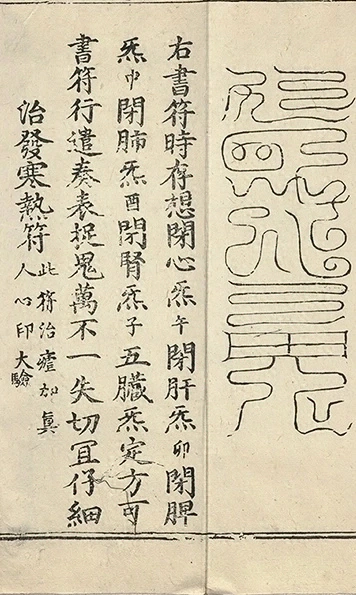 右書符時存想閉心炁午閉肝炁卯閉脾
炁中閉肺炁酉閉腎炁子五臟炁定方可
書符行遣奏表捉鬼萬不一失切宜仔細
治發寒熱符此符治瘧加真
人心印大驗